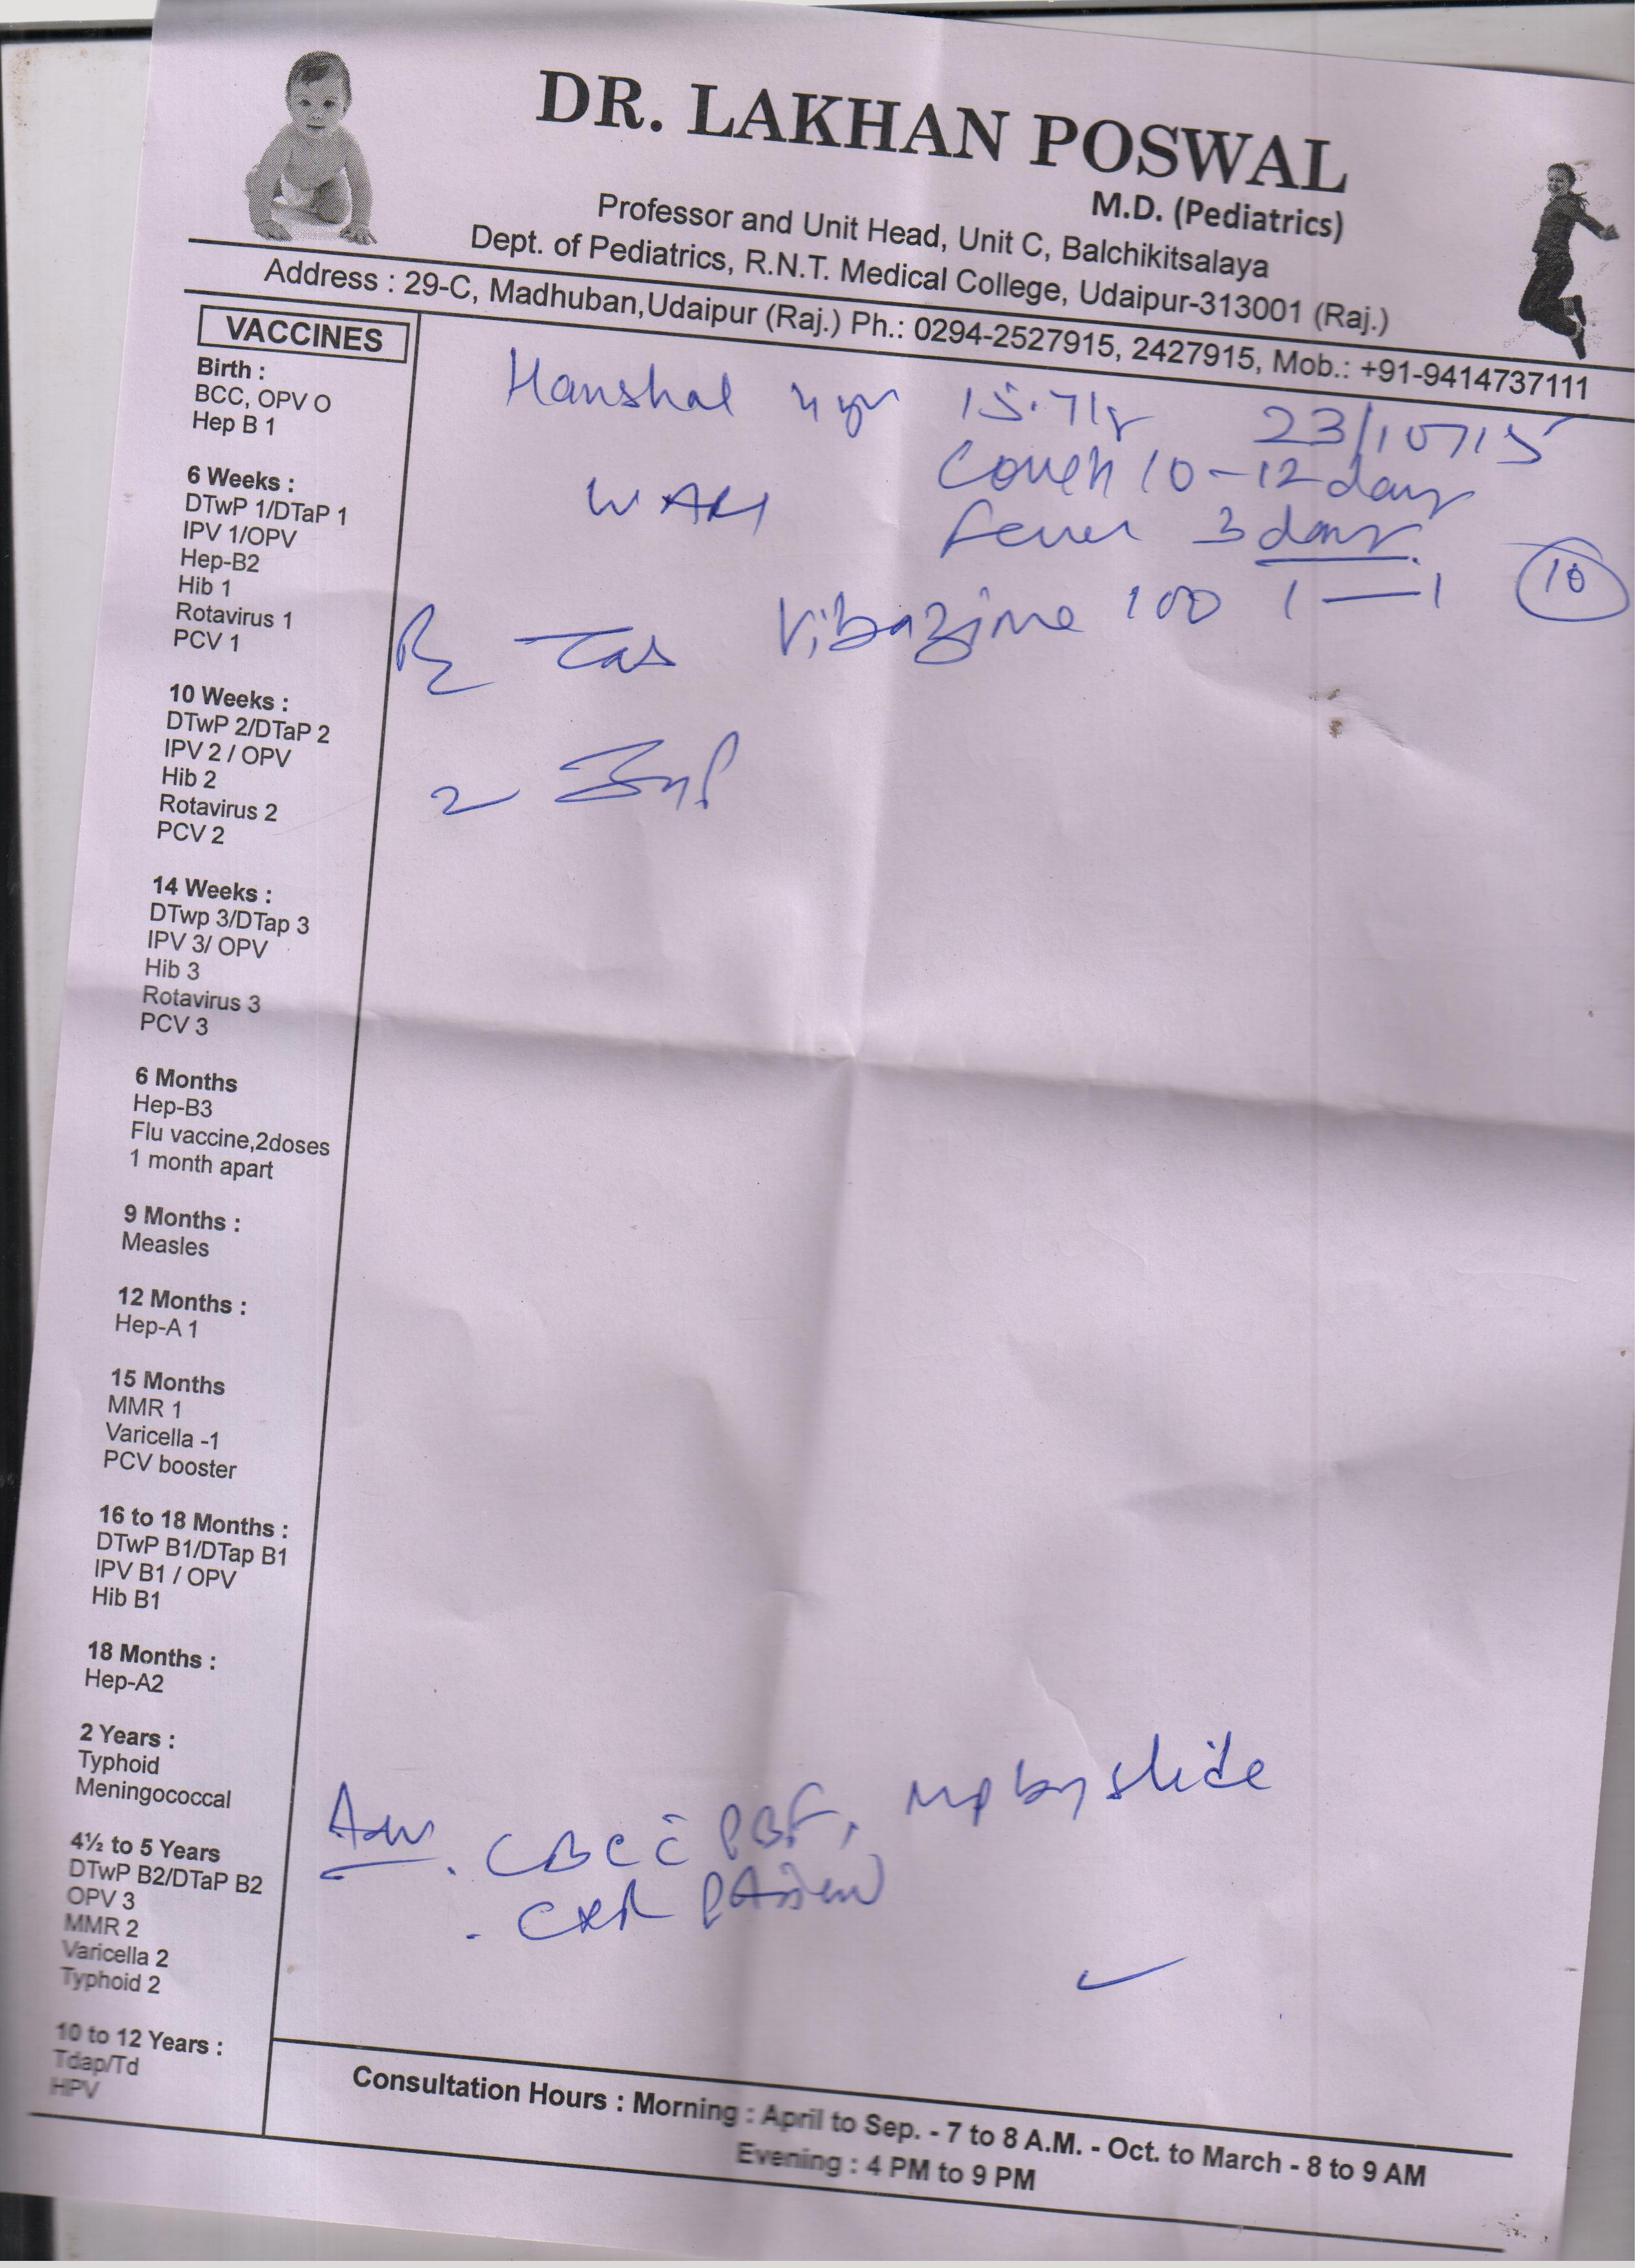 DR. LAKHAN POSWAL
M.D. (Pediatrics)
Professor and Unit Head, Unit C, Balchikitsalaya
Dept. of Pediatrics, R.N.T. Medical College, Udaipur-313001 (Raj.)
Address : 29-C, Madhuban,Udaipur (Raj.) Ph.: 0294-2527915, 2427915, Mob.: +91-9414737111
VACCINES
Birth :
BCC, OPV O
Hep B 1
6 Weeks :
DTwP 1/DTaP 1
IPV 1/OPV
Hep-B2
Hib 1
Rotavirus 1
PCV 1
10 Weeks :
DTwP 2/DTaP 2
IPV 2 / OPV
Hib 2
Rotavirus 2
PCV 2
14 Weeks :
DTwp 3/DTap 3
IPV 3/ OPV
Hib 3
Rotavirus 3
PCV 3
6 Months
Hep-B3
Flu vaccine,2doses
1 month apart
9 Months :
Measles
12 Months :
Hep-A 1
15 Months
MMR 1
Varicella -1
PCV booster
16 to 18 Months :
DTwP B1/DTap B1
IPV B1 / OPV
Hib B1
18 Months :
Hep-A2
2 Years :
Typhoid
Meningococcal
4½ to 5 Years
DTwP B2/DTaP B2
OPV 3
MMR 2
Varicella 2
Typhoid 2
10 to 12 Years :
Tdap/Td
HPV
23/10/15
Cough 10-12 days
fever 3 days
Rx Tab 100 1—1 10
2
Adv. CBC c̄ PBF, MP by slide
. CXR PA view
Consultation Hours : Morning : April to Sep. - 7 to 8 A.M. - Oct. to March - 8 to 9 AM
Evening : 4 PM to 9 PM